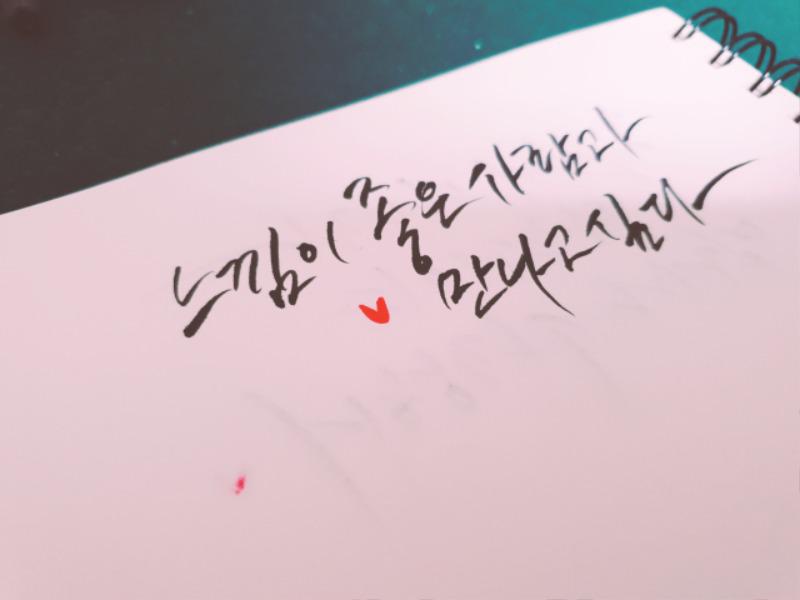 느낌이 좋은 사람과
만나고 싶다